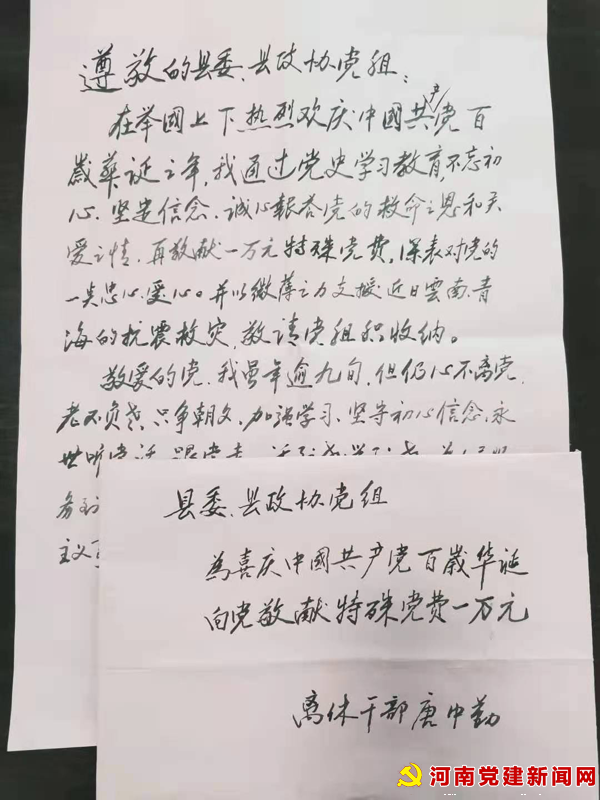 遵敬的县委、县政协党组：
在举國上下热烈欢庆中國共产党百
歲華诞之年，我通过党史学习教育，不忘初
心、坚定信念、诚心報答党的救命之恩和关
爱之情，再敬献一万元特殊党费，深表对党的
一点忠心、爱心。并以微薄之力支援近日雲南、青
海的抗震救灾，敬请党组织收纳。
敬爱的党，我虽年逾九旬，但仍心不离党，
老不负党，只争朝夕，加强学习、坚守初心信念，永
世听党话、跟党走
务
主义
县委、县政协党组
為喜庆中國共产党百歲华诞
向党敬献特殊党费一万元
离休干部唐中勤
河南党建新闻网